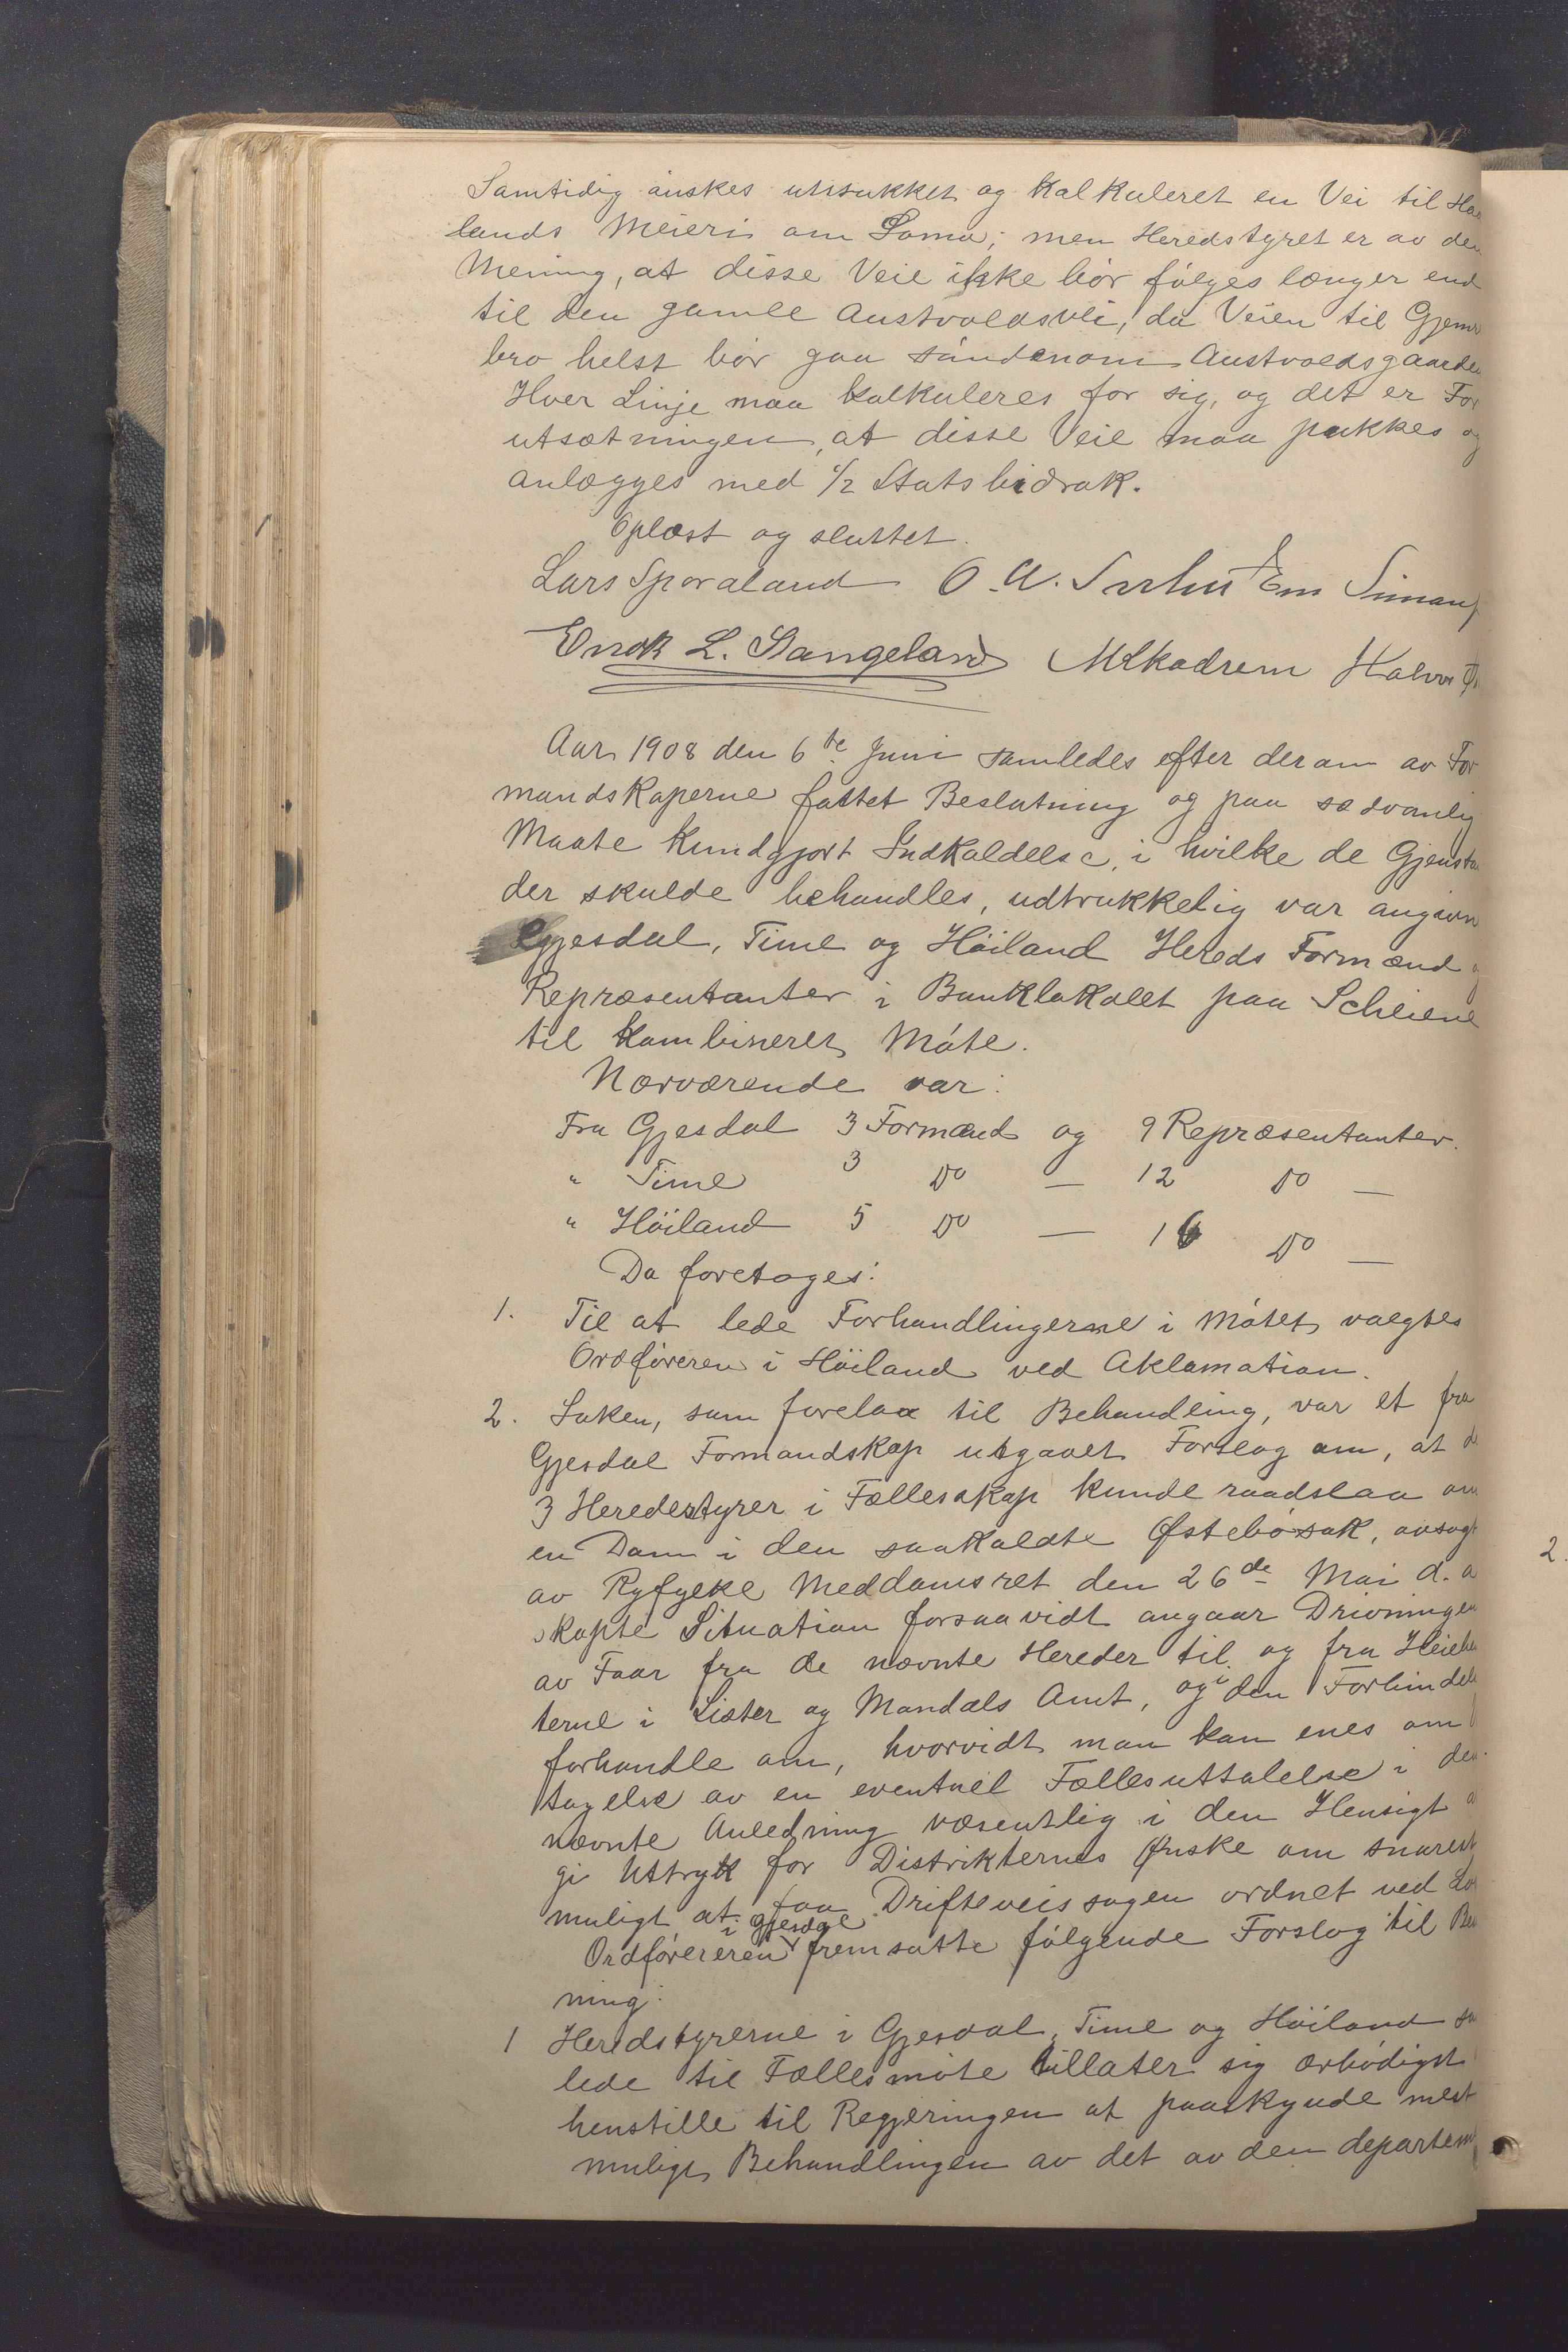 Samtidig ønskes utstukket og kalkuleret en Vei til
lands Meieri om Soma; men Heredstyret er av den
Mening, at disse Veie ikke bør følges længer end
til den gamle Austvoldsvei, da Veien til
bro helst bør gaa søndenom Austvoldsgaarden
Hver Linje maa kalkuleres for sig, og det er For
utsætningen, at disse Veie maa pukkes og
anlægges med 1/2 Statsbidrak.
Oplæst og sluttet.
Lars Sporaland O. A. Em
Enok L. Stangeland
Aar 1908 den 6te Juni samledes efter derom av For
mandskaperne fattet Beslutning og paa sædvanlig
Maate kundgjort Indkaldelse, i hvilke de Gjensta
der skulde behandles, udtrukkelig var angivn
Gjesdal, Time og Höiland Hereds Formænd
Repræsentanter i Banklokalet paa Scheiene
til kombineret Møte.
Nærværende var:
Fra Gjesdal 3 Formænd og 9 Repræsentanter.
" Time 3 Do — 12 Do —
" Höiland 5 Do — 16 Do —
Da foretoges:
1. Til at lede Forhandlingerne i Møtet valgtes
Ordføreren i Höiland ved Aklamation.
2. Saken, som forelaa til Behandling, var et fra
Gjesdal Formandskap utgaaet Forslag om, at de
3 Heredestyrer i Fællesskap kunde raadslaa om
en Dom i den saakaldte Østebøsak, avsagt
av Ryfylke Meddomsret den 26de Mai d. a
skapte Situation forsaavidt angaar Drivningen
av Faar fra de nævnte Hereder til og fra Heiebe
terne i Lister og Mandals Amt, og i den Forbindels
forhandle om, hvorvidt man kan enes om
tagelse av en eventuel Fællesuttalelse i den
nævnte Anledning væsentlig i den Hensigt a
gi Uttryk for Distrikternes Ønske om snarest
muligt at faa Drifteveissagen ordnet ved Lo
Ordførereren i Gjesdal fremsatte følgende Forslag til Be
ning:
1 Heredstyrerne i Gjesdal, Time og Höiland sa
lede til Fællesmøte tillater sig ærbødigst
henstille til Regjeringen at paaskynde mest
muligt Behandlingen av det av den departem
2.